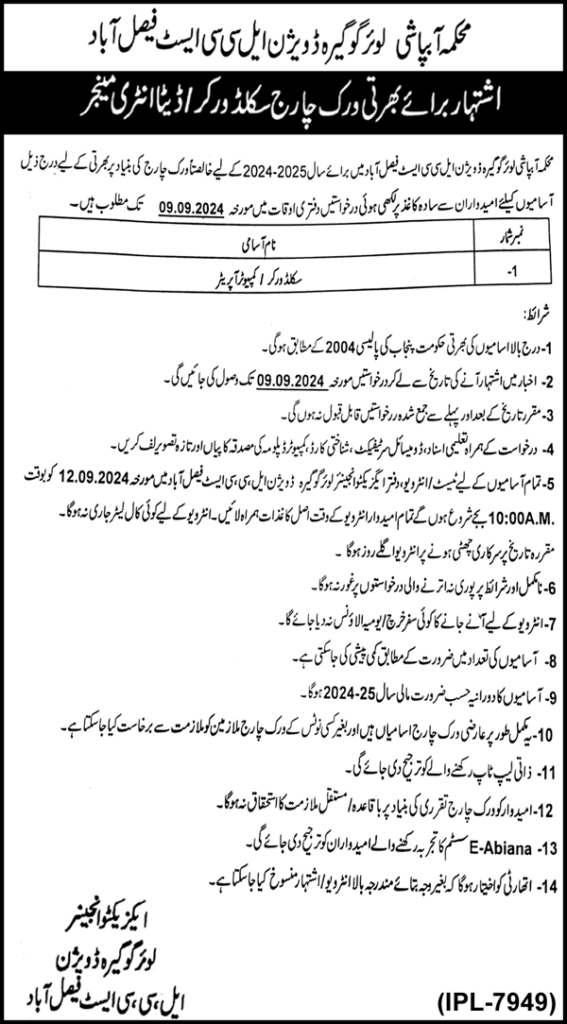 محکمہ آبپاشی لوئر گوگیرہ ڈویژن ایل سی سی ایسٹ فیصل آباد
اشتہار برائے بھرتی ورک چارج سکلڈ ورکر/ڈیٹا انٹری مینجر
محکمہ آبپاشی لوئر گوگیرہ ڈویژن ایل سی سی ایسٹ فیصل آباد میں برائے سال 2025-2024 کے لیے خالصتاً ورک چارج کی بنیاد پر بھرتی کے لیے درج ذیل
آسامیوں کیلئے امیدواران سے سادہ کاغذ پر لکھی ہوئی درخواستیں دفتری اوقات میں مورخہ 09.09.2024 تک مطلوب ہیں۔
نمبر شمار نام آسامی
1- سکلڈ ورکر/ کمپیوٹر آپریٹر
شرائط:
1- درج بالا اسامیوں کی بھرتی حکومت پنجاب کی پالیسی 2004 کے مطابق ہوگی۔
2- اخبار میں اشتہار آنے کی تاریخ سے لے کر درخواستیں مورخہ 09.09.2024 تک وصول کی جائیں گی۔
3- مقررہ تاریخ کے بعد اور پہلے سے جمع شدہ درخواستیں قابل قبول نہ ہوں گی۔
4- درخواست کے ہمراہ تعلیمی اسناد، ڈومیسائل سرٹیفکیٹ، شناختی کارڈ، کمپیوٹر ڈپلومہ کی مصدقہ کاپیاں اور تازہ تصویر لف کریں۔
5- تمام آسامیوں کے لیے ٹیسٹ/انٹرویو، دفتر ایگزیکٹو انجینئر لوئر گوگیرہ ڈویژن ایل سی سی ایسٹ فیصل آباد میں مورخہ 12.09.2024 کو بوقت
10:00A.M. بجے شروع ہوں گے تمام امیدوار انٹرویو کے وقت اصل کاغذات ہمراہ لائیں۔ انٹرویو کے لیے کوئی کال لیٹر جاری نہ ہوگا۔
مقررہ تاریخ پر سرکاری چھٹی ہونے پر انٹرویو اگلے روز ہوگا۔
6- نامکمل اور شرائط پر پوری نہ اترنے والی درخواستوں پر غور نہ ہوگا۔
7- انٹرویو کے لیے آنے جانے کا کوئی سفر خرچ/یومیہ الاؤنس نہ دیا جائے گا۔
8- آسامیوں کی تعداد میں ضرورت کے مطابق کمی پیشی کی جاسکتی ہے۔
9- آسامیوں کا دورانیہ حسب ضرورت مالی سال 25-2024 ہوگا۔
10- یہ مکمل طور پر عارضی ورک چارج اسامیاں ہیں اور بغیر کسی نوٹس کے ورک چارج ملازمین کو ملازمت سے برخاست کیا جاسکتا ہے۔
11- ذاتی لیپ ٹاپ رکھنے والے کو ترجیح دی جائے گی۔
12- امیدوار کو ورک چارج تقرری کی بنیاد پر باقاعدہ/مستقل ملازمت کا استحقاق نہ ہوگا۔
13- E-Abiana سسٹم کا تجربہ رکھنے والے امیدواران کو ترجیح دی جائے گی۔
14- اتھارٹی کو اختیار ہوگا کہ بغیر وجہ بتائے مندرجہ بالا انٹرویو/اشتہار منسوخ کیا جاسکتا ہے۔
ایگزیکٹو انجینئر
لوئر گوگیرہ ڈویژن
ایل سی سی ایسٹ فیصل آباد
(IPL-7949)